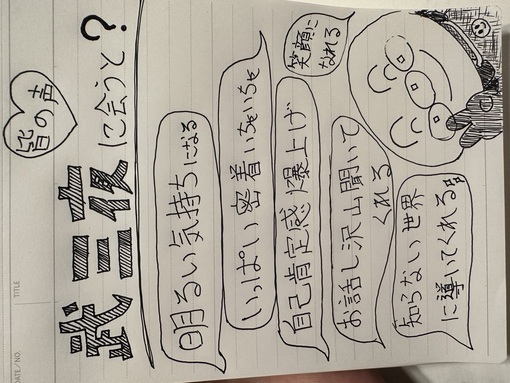 DATE/NO.
TITLE
皆の声
武三夜に会うと?
明るい気持ちになる
いっぱい密着いちゃいちゃ
自己肯定感爆上げ
笑顔に
なれる
お話し沢山聞いて
くれる
知らない世界
に導いてくれる